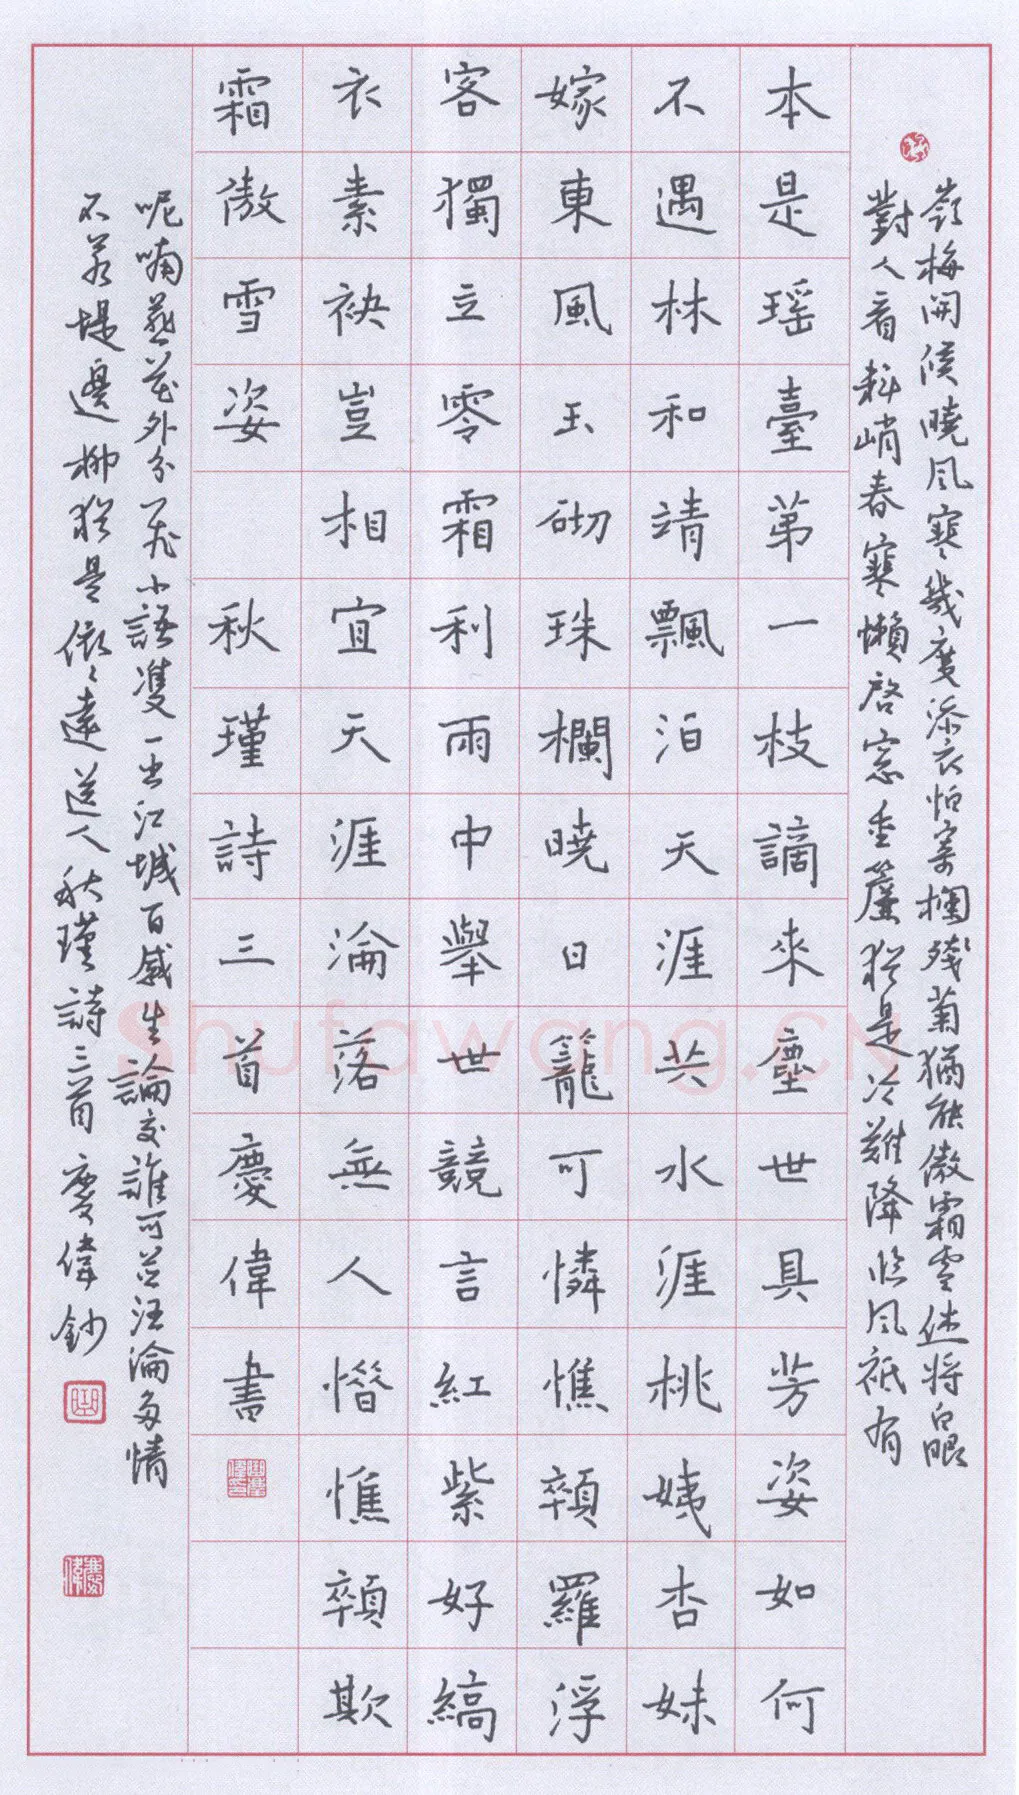 嶺梅開候曉风寒幾度添衣怕寄欄殘菊猶能傲霜雪休將白眼
對人看料峭春寒懶啓窓垂簾猶是冷難降臨风祗有
本是瑶臺第一枝謫來塵世具芳姿如何
不遇林和靖飄泊天涯共水涯桃姨杏妹
嫁東風玉砌珠欄曉日籠可憐憔顇羅浮
客獨立零霜利雨中舉世競言紅紫好縞
衣素袂豈相宜天涯淪落無人惜憔顇欺
霜傲雪姿 秋瑾詩三首慶偉書
呢喃燕花外分飛小語雙一出江城百感生論交誰可並汪淪多情
不若堤邊柳猶是依〻遠送人秋瑾詩三首慶偉鈔
Shufawang.CN